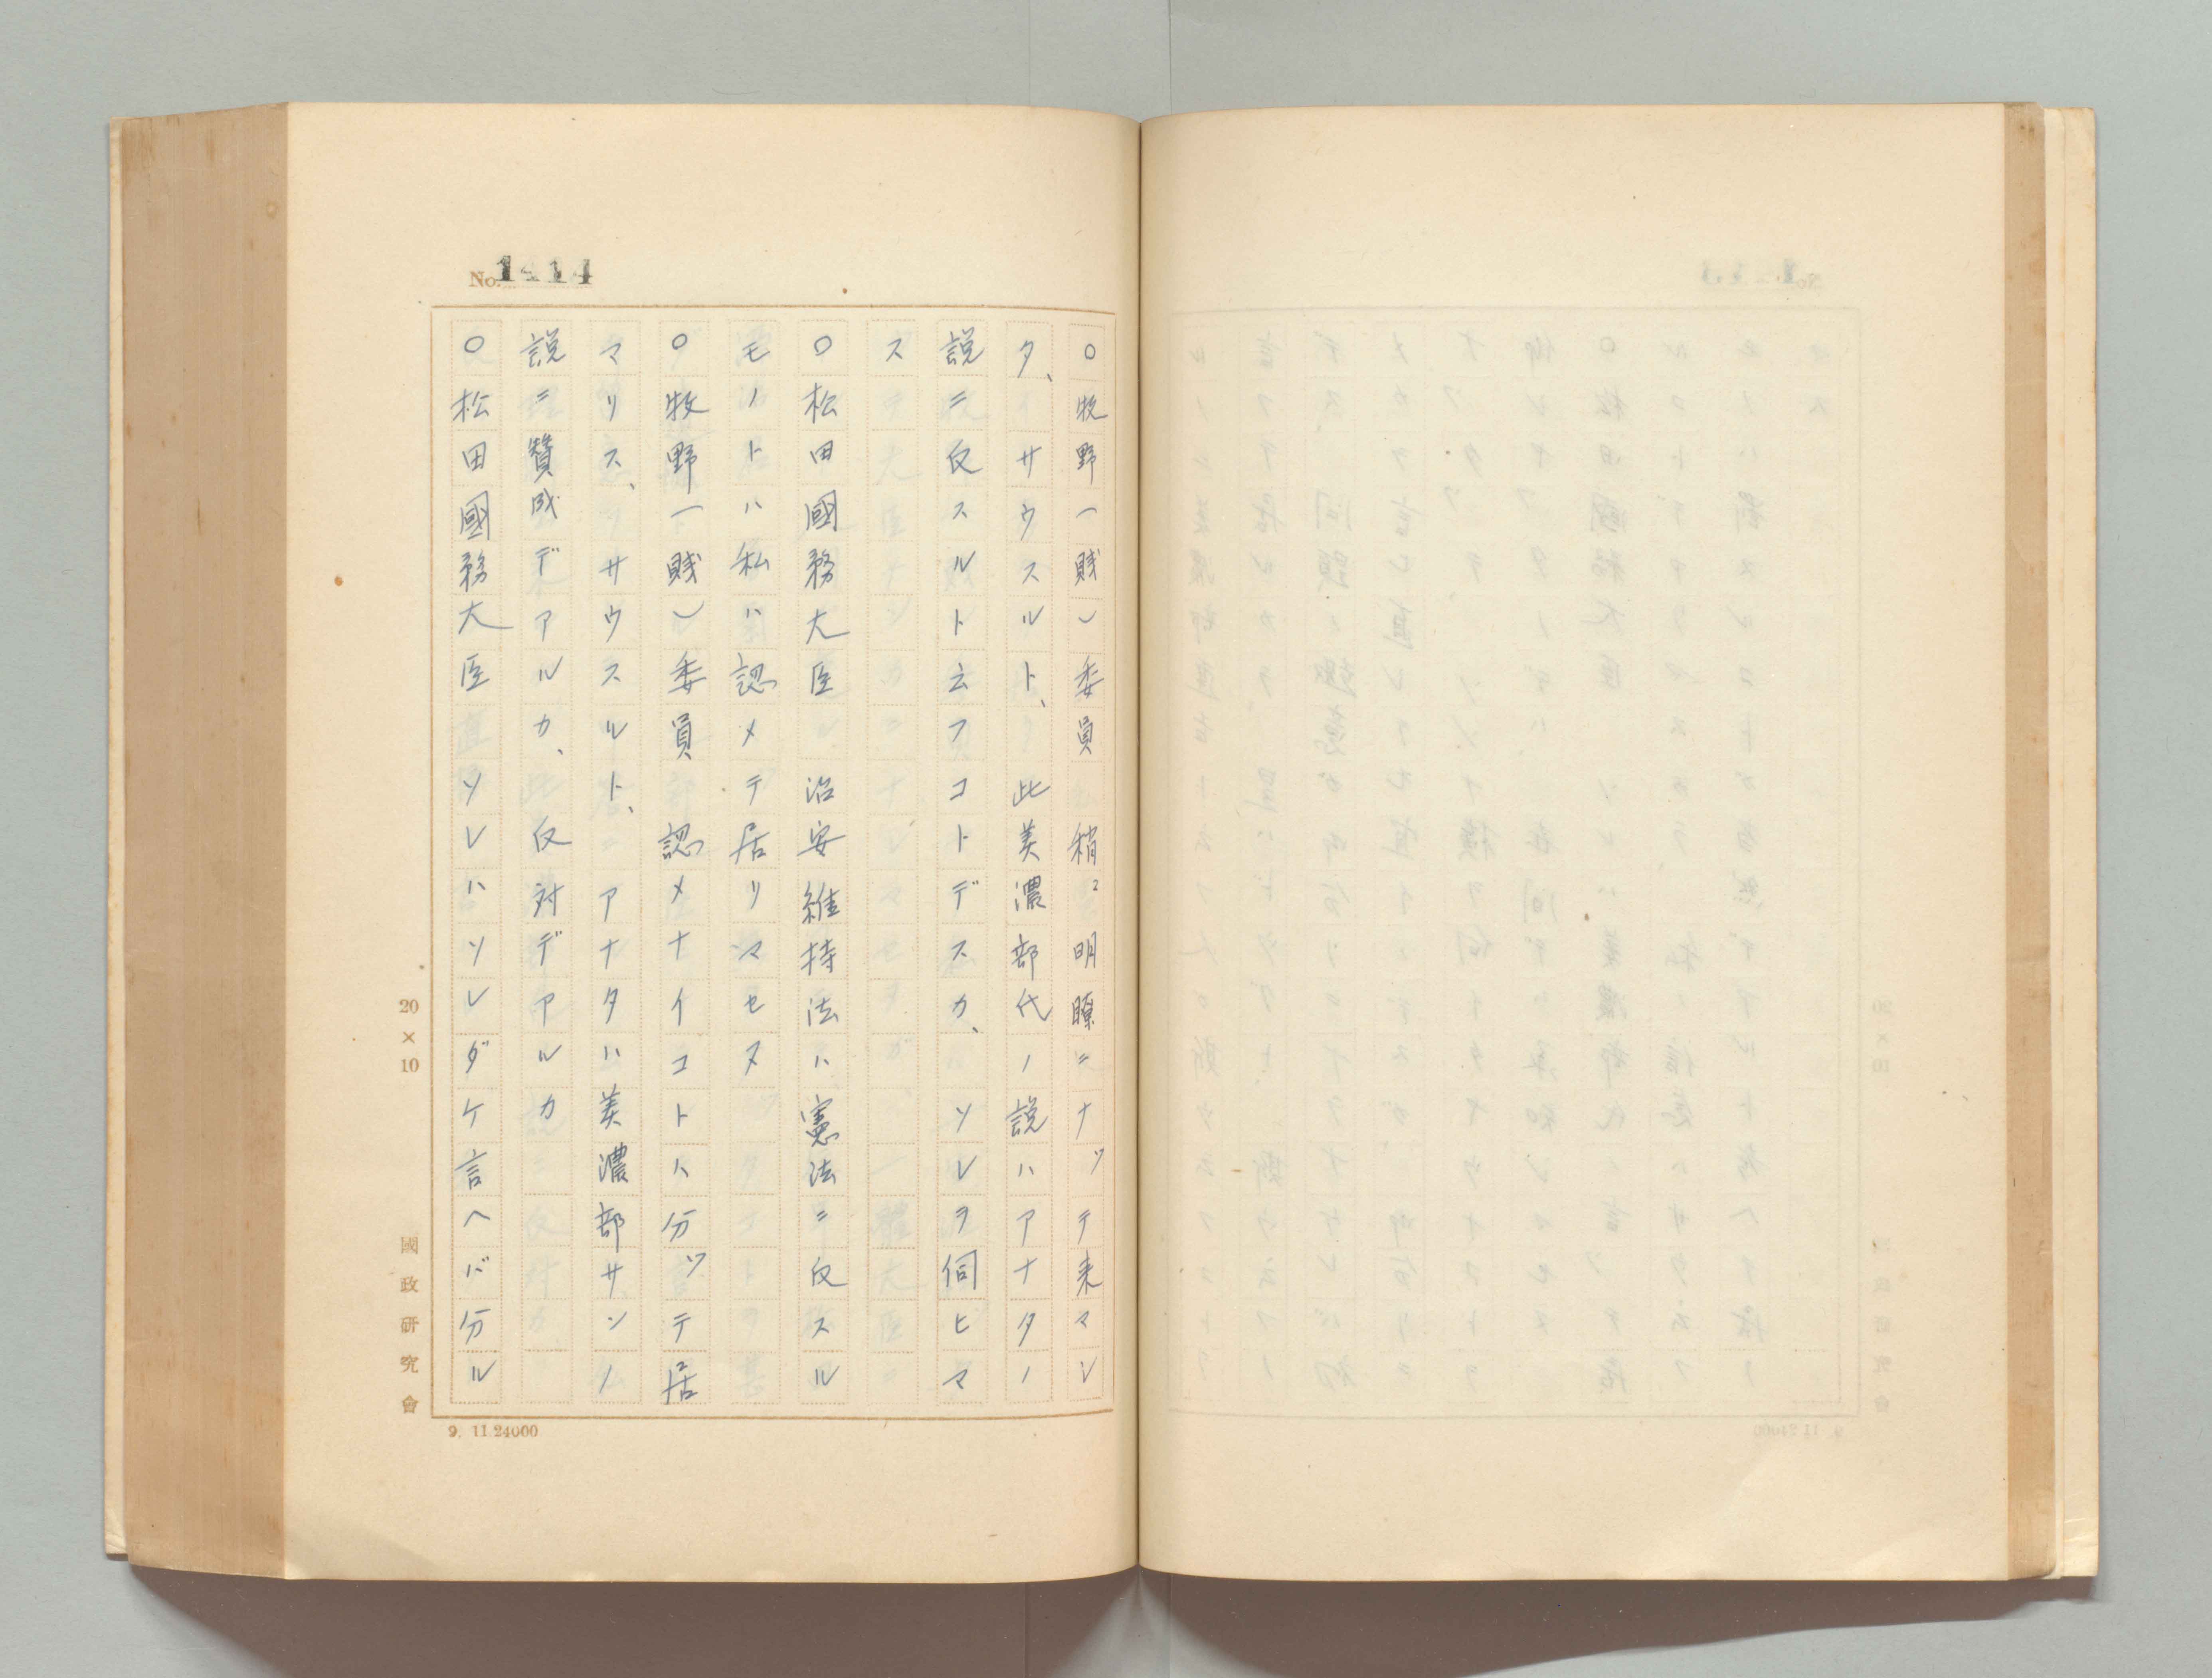 No. 1414
○牧野(賤)委員 稍〻明瞭ニナッテ来マシ
タ、サウスルト、此美濃部代ノ説ハアナタノ
説ニ反スルト云フコトデスカ、ソレヲ伺ヒマ
ス
○松田國務大臣 治安維持法ハ憲法ニ反スル
モノトハ私ハ認メテ居リマセヌ
○牧野(賤)委員 認メナイコトハ分ッテ居
マリス、サウスルト、アナタハ美濃部サンノ
説ニ賛成デアルカ、反対デアルカ
○松田國務大臣 ソレハソレダケ言ヘバ分ル
20×10
國政研究會
9. 11.24000